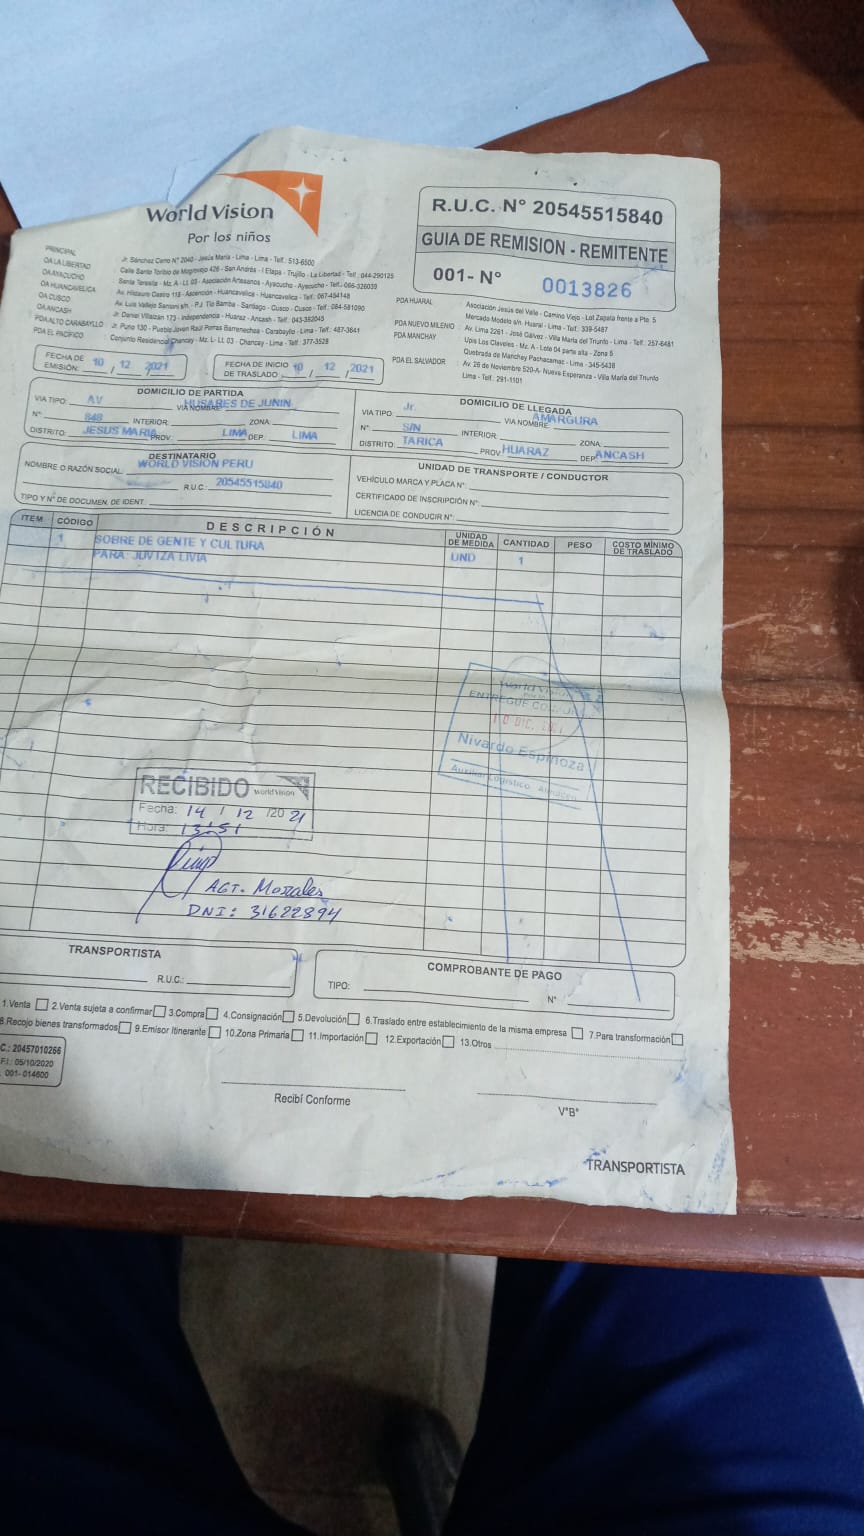 World Vision
Por los niños
R.U.C. N° 20545515840
GUIA DE REMISION - REMITENTE
001- N° 0013826
PRINCIPAL : Jr. Sánchez Cerro N° 2040 - Jesús María - Lima - Lima - Telf.: 513-6500
OA LA LIBERTAD : Calle Santo Toribio de Mogrovejo 426 - San Andrés - I Etapa - Trujillo - La Libertad - Telf.: 044-290125
OA AYACUCHO : Santa Teresita - Mz. A - Lt. 03 - Asociación Artesanos - Ayacucho - Ayacucho - Telf.: 066-326039
OA HUANCAVELICA : Av. Hildauro Castro 118 - Ascención - Huancavelica - Huancavelica - Telf.: 067-454148
OA CUSCO : Av. Luis Vallejo Sansoni s/n. - P.J. Tío Bamba - Santiago - Cusco - Cusco - Telf.: 084-581090
OA ANCASH : Jr. Daniel Villaizán 173 - Independencia - Huaraz - Ancash - Telf.: 043-352045
PDA ALTO CARABAYLLO : Jr. Puno 130 - Pueblo Joven Raúl Porras Barrenechea - Carabayllo - Lima - Telf.: 487-3641
PDA EL PACÍFICO : Conjunto Residencial Chancay - Mz. L- Lt. 03 - Chancay - Lima - Telf.: 377-3528
PDA HUARAL Asociación Jesús del Valle - Camino Viejo - Lot Zapata frente a Pte. 5
Mercado Modelo s/n. Huaral - Lima - Telf.: 339-5487
PDA NUEVO MILENIO Av. Lima 2261 - José Gálvez - Villa María del Triunfo - Lima - Telf.: 257-6481
PDA MANCHAY Upis Los Claveles - Mz. A - Lote 04 parte alta - Zona 5
Quebrada de Manchey Pachacamac - Lima - 345-5438
PDA EL SALVADOR Av. 26 de Noviembre 520-A- Nueva Esperanza - Villa María del Triunfo
Lima - Telf.: 291-1101
FECHA DE EMISIÓN: 10 / 12 / 2021
FECHA DE INICIO DE TRASLADO: 10 / 12 / 2021
DOMICILIO DE PARTIDA
VIA TIPO: AV VIA NOMBRE: HUSARES DE JUNIN
N°: 848 INTERIOR: ZONA:
DISTRITO: JESUS MARIA PROV.: LIMA DEP.: LIMA
DOMICILIO DE LLEGADA
VIA TIPO Jr. VIA NOMBRE: AMARGURA
N°: S/N INTERIOR ZONA:
DISTRITO: TARICA PROV: HUARAZ DEP ANCASH
DESTINATARIO
NOMBRE O RAZÓN SOCIAL: WORLD VISION PERU
R.U.C.: 20545515840
TIPO Y N° DE DOCUMEN. DE IDENT.:
UNIDAD DE TRANSPORTE / CONDUCTOR
VEHÍCULO MARCA Y PLACA N°:
CERTIFICADO DE INSCRIPCIÓN N°:
LICENCIA DE CONDUCIR N°:
ITEM CÓDIGO DESCRIPCIÓN UNIDAD DE MEDIDA CANTIDAD PESO COSTO MÍNIMO DE TRASLADO
1 SOBRE DE GENTE Y CULTURA UND 1
PARA: JUVITZA LIVIA
World Vision
ENTREGUE
10 DIC. 2021
Nivardo Espinoza
Auxiliar Logistico Almacen
RECIBIDO World Vision
Fecha: 14 / 12 /20 21
Hora: 13:51
AGT. Morales
DNI: 31622894
TRANSPORTISTA
R.U.C.:
COMPROBANTE DE PAGO
TIPO: N°
1.Venta 2.Venta sujeta a confirmar 3.Compra 4.Consignación 5.Devolución 6.Traslado entre establecimiento de la misma empresa 7.Para transformación
8.Recojo bienes transformados 9.Emisor Itinerante 10.Zona Primaria 11.Importación 12.Exportación 13.Otros
C.: 20457010266
F.I.: 05/10/2020
001- 014600
Recibí Conforme
V°B°
TRANSPORTISTA